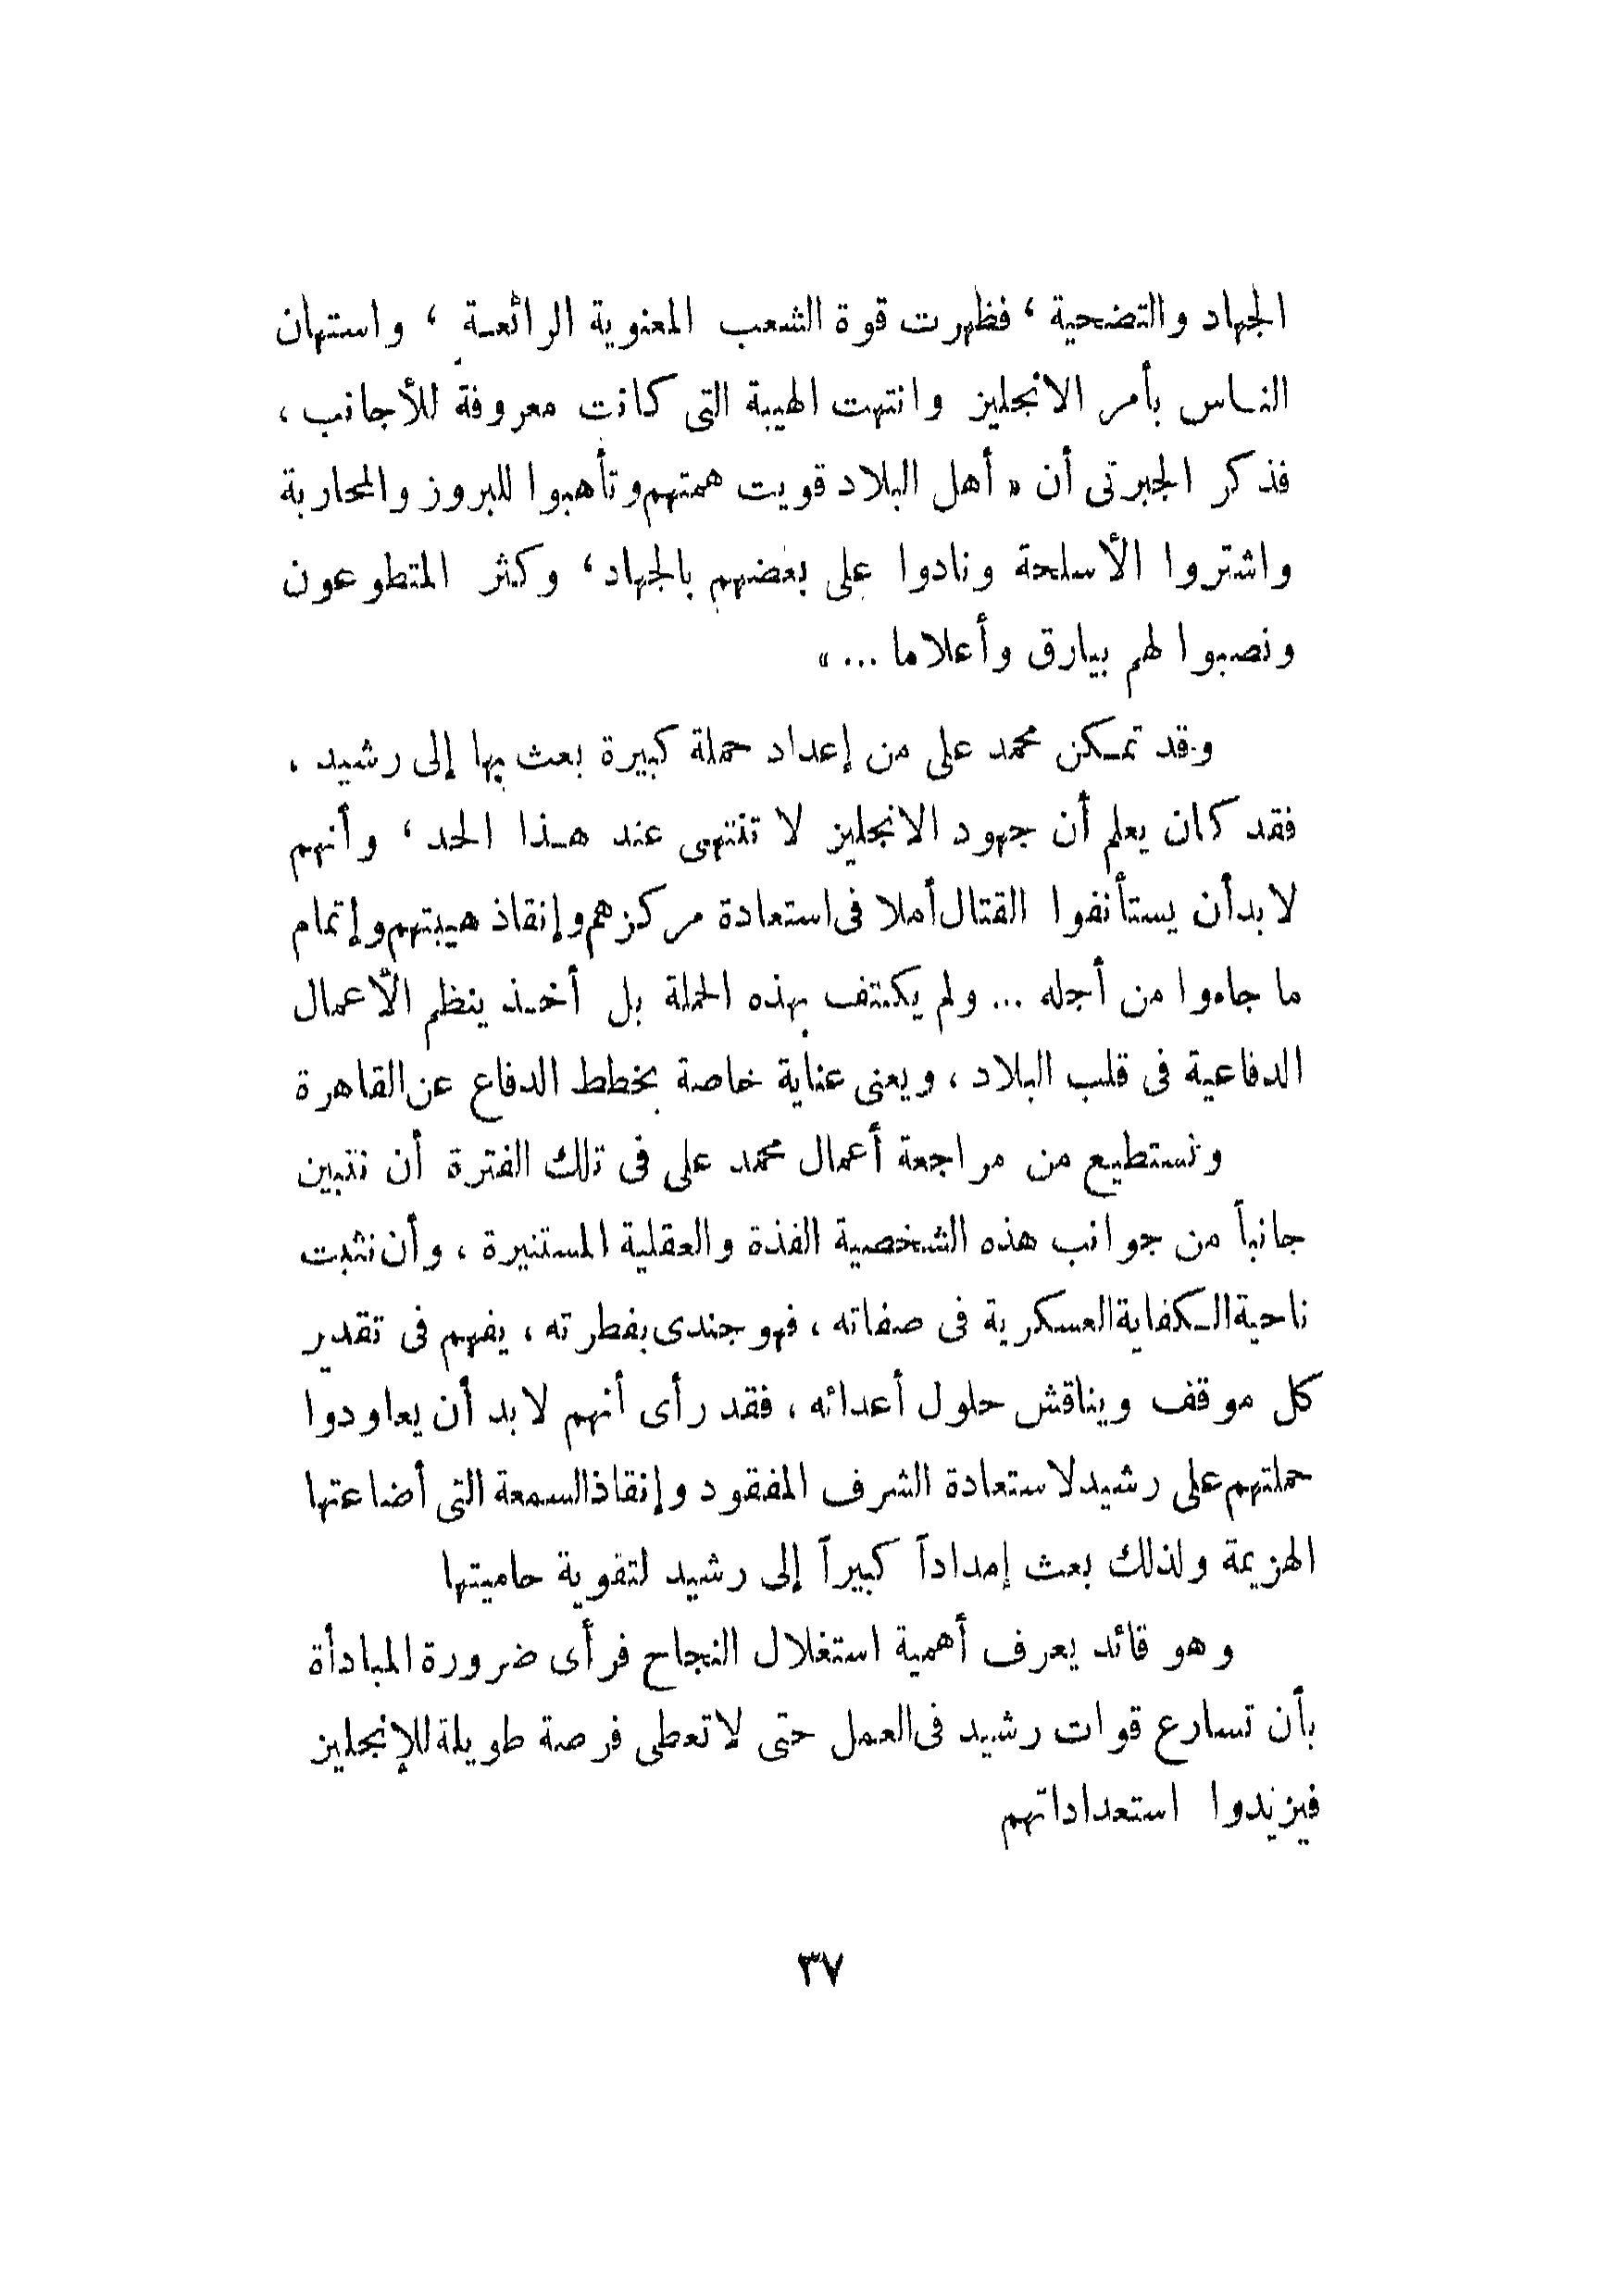 الجهاد والتضحية ، فظهرت قوة الشعب المعنوية الرائعـة ، واستهان
النـاس بأمر الانجليز وانتهت الهيبة التى كانت معروفة للأجانب ،
فذكر الجبرتى أن « أهل البلاد قويت همتهم وتأهبوا للبروز والمحاربة
واشتروا الأسلحة ونادوا على بعضهم بالجهاد ، وكثر المتطوعون
ونصبوا لهم بيارق وأعلاما ... »
وقد تمـكن محمد على من إعداد حملة كبيرة بعث بها إلى رشيد .
فقد كان يعلم أن جهود الانجليز لا تنتهى عند هـذا الحد ، وأنهم
لا بد أن يستأنفوا القتال أملا فى استعادة مركزهم وإنقاذ هيبتهم وإتمام
ما جاءوا من أجله ... ولم يكتف بهذه الحملة بل أخـذ ينظم الأعمال
الدفاعية فى قلب البلاد ، ويعنى عناية خاصة بخطط الدفاع عن القاهرة
ونستطيع من مراجعة أعمال محمد على فى تلك الفترة أن نتبين
جانباً من جوانب هذه الشخصية الفذة والعقلية المستنيرة ، وأن نثبت
ناحية الـكفاية العسكرية فى صفاته ، فهو جندى بفطرته ، يفهم فى تقدير
كل موقف ويناقش حلول أعدائه ، فقد رأى أنهم لا بد أن يعاودوا
حملتهم على رشيد لاستعادة الشرف المفقود وإنقاذ السمعة التى أضاعتها
الهزيمة ولذلك بعث إمداداً كبيراً إلى رشيد لتقوية حاميتها
وهو قائد يعرف أهمية استغلال النجاح فرأى ضرورة المبادأة
بأن تسارع قوات رشيد فى العمل حتى لا تعطى فرصة طويلة للإنجليز
فيزيدوا استعداداتهم
٣٧